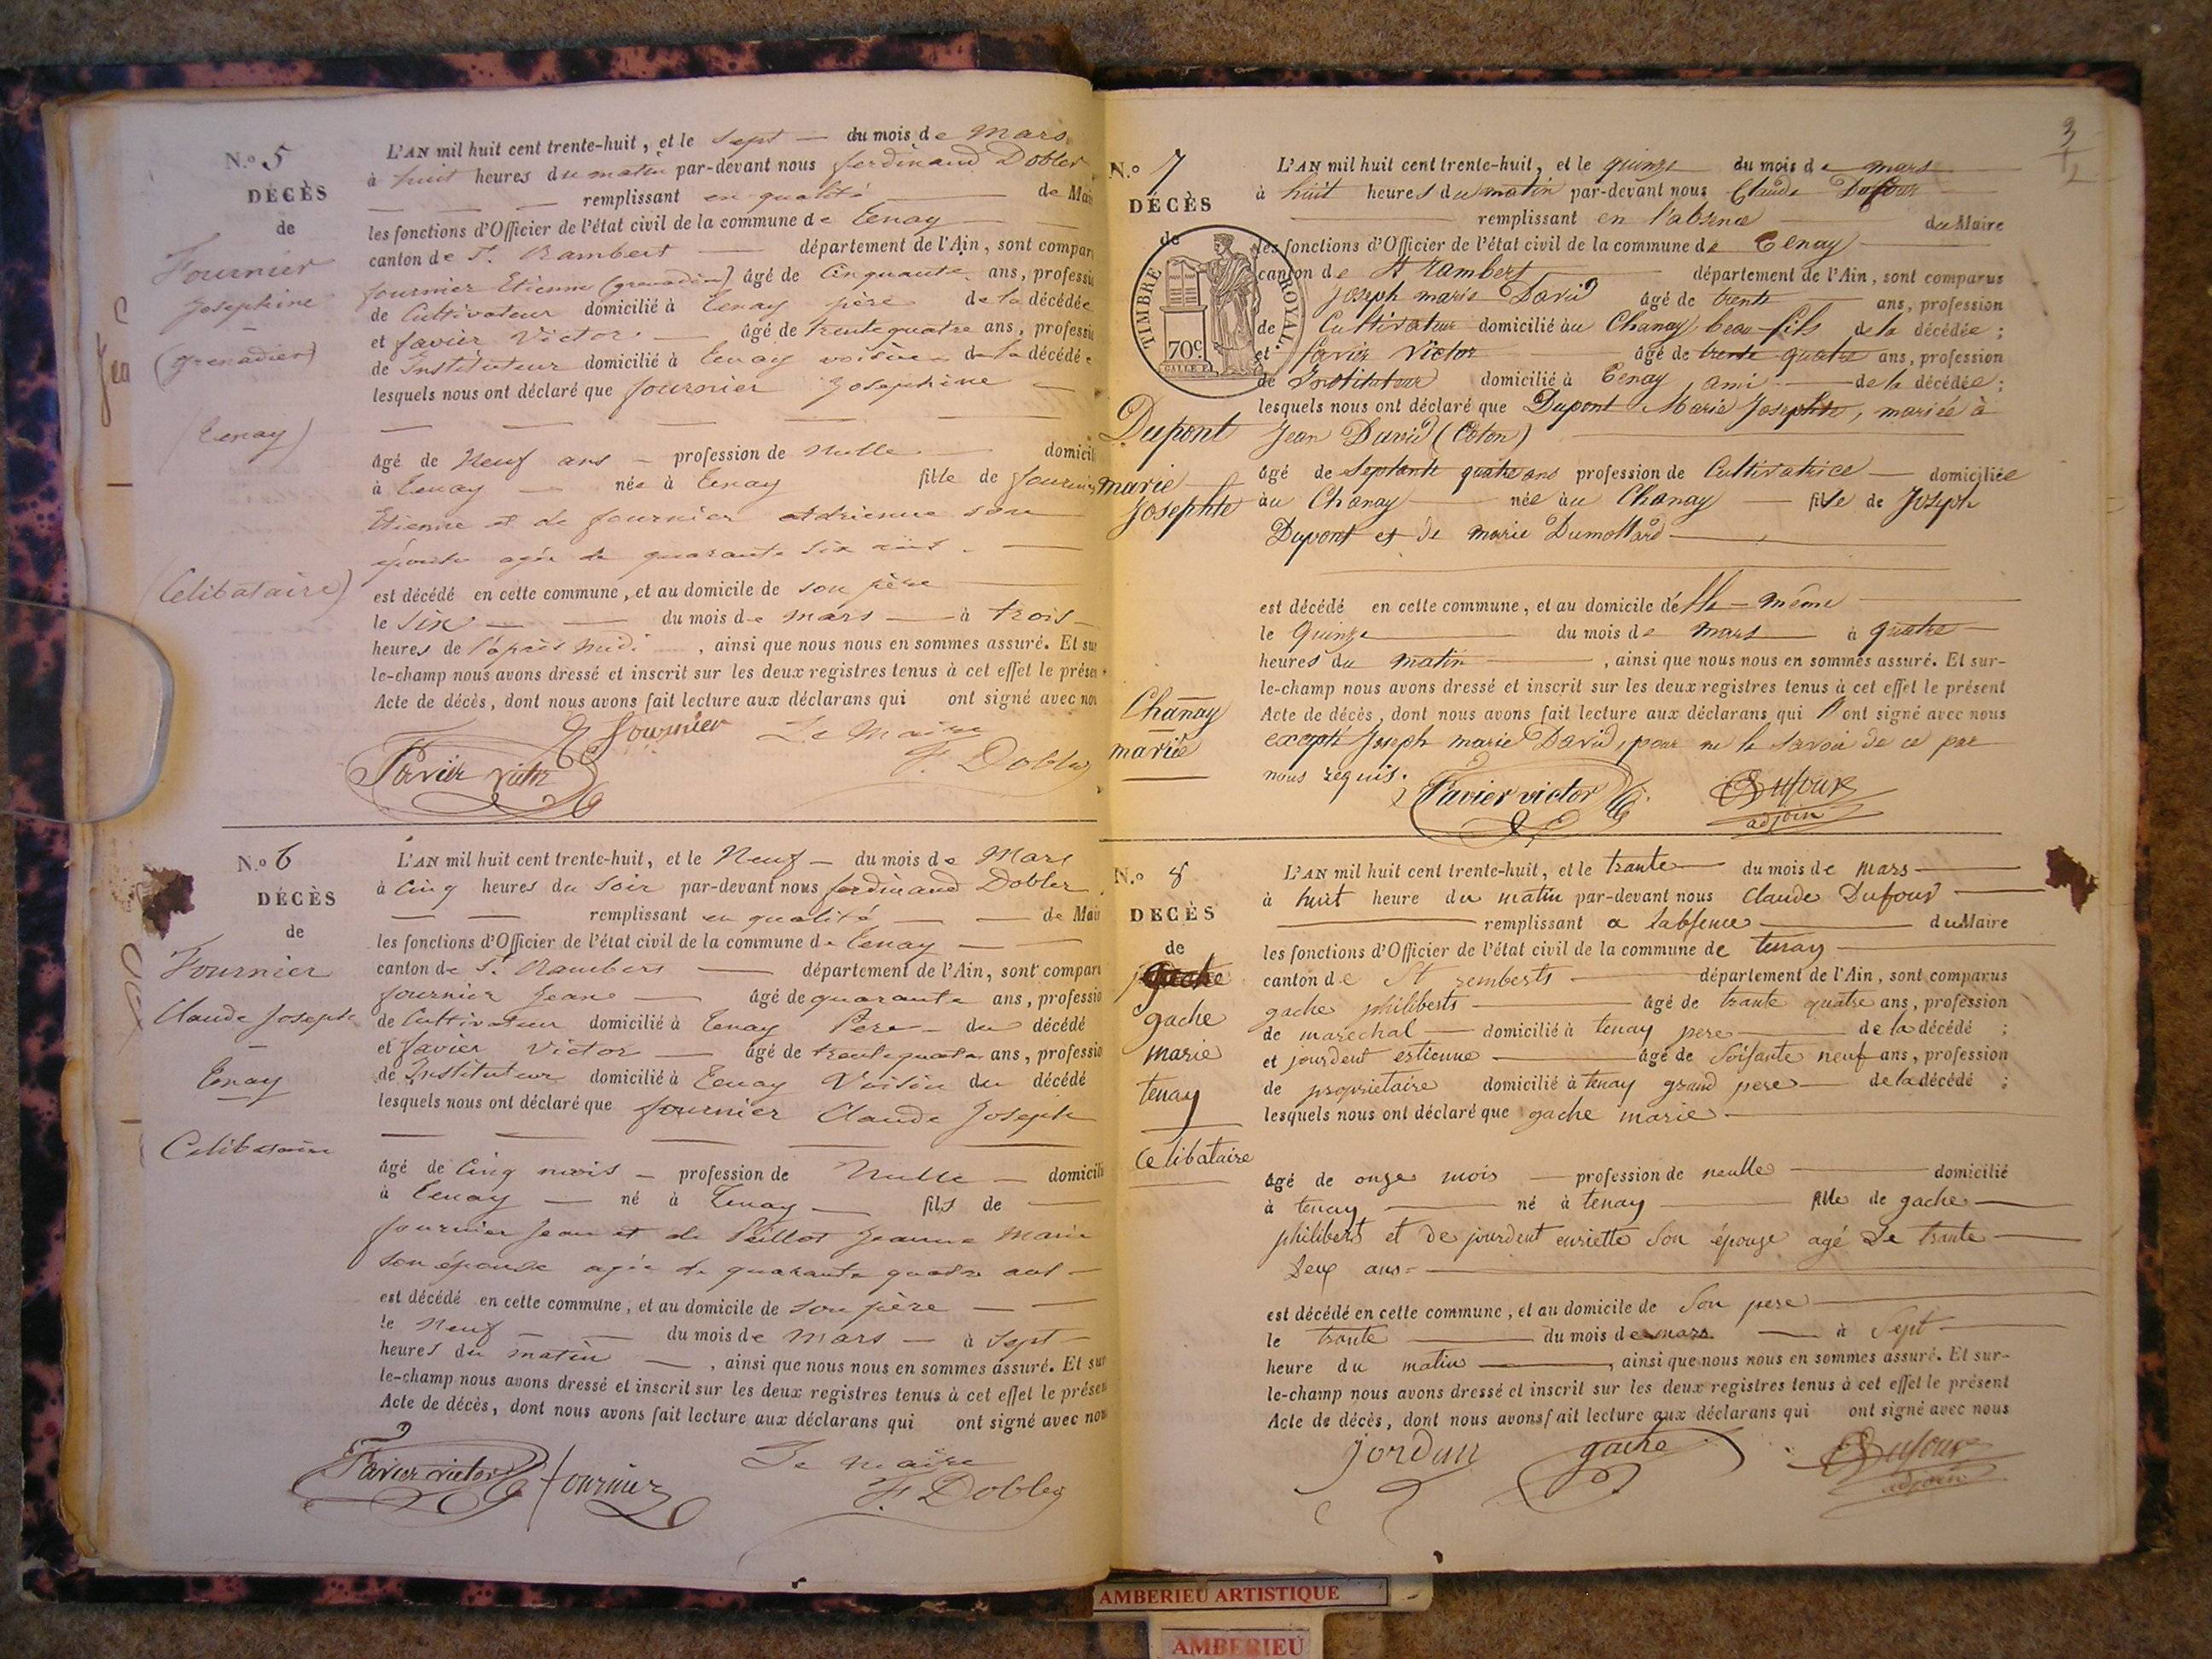 N.o 5
DÉCÈS
de
Fournier
Josephine
(grenadier)
(Tenay)
(Celibataire)
L'AN mil huit cent trente-huit, et le sept — du mois de Mars
à huit heures du matin par-devant nous ferdinand Dobler
remplissant en qualité — de Mai
les fonctions d'Officier de l'état civil de la commune de Tenay
canton de St. Rambert — département de l'Ain, sont compar
fournier Etienne (grenadier) âgé de Cinquante ans, professi
de Cultivateur domicilié à Tenay père de la décédée
et favier Victor — âgé de trente quatre ans, professi
de Instituteur domicilié à Tenay voisin de la décédée
lesquels nous ont déclaré que fournier Josephine
âgé de Neuf ans — profession de Nulle — domicili
à Tenay — née à Tenay fille de fournier
Etienne et de fournier Adrienne son
épouse agée de quarante six ans. —
est décédé en cette commune, et au domicile de son père
le Six — du mois de mars — à trois —
heures de l'après midi, ainsi que nous nous en sommes assuré. Et sur
le-champ nous avons dressé et inscrit sur les deux registres tenus à cet effet le présen
Acte de décès, dont nous avons fait lecture aux déclarans qui ont signé avec nou
fournier Le Maire
Favier victor F. Dobler
N.o 6
DÉCÈS
de
Fournier
Claude Joseph
Tenay
Celibataire
L'AN mil huit cent trente-huit, et le Neuf — du mois de Mars
à Cinq heures du soir par-devant nous ferdinand Dobler
remplissant en qualité — de Mair
les fonctions d'Officier de l'état civil de la commune de Tenay —
canton de St. Rambert — département de l'Ain, sont compar
fournier Jean — âgé de quarante ans, professio
de Cultivateur domicilié à Tenay Père — du décédé
et favier Victor — âgé de trente quatre ans, professio
de Instituteur domicilié à Tenay Voisin du décédé
lesquels nous ont déclaré que fournier Claude Joseph
âgé de Cinq mois — profession de Nulle — domicili
à Tenay — né à Tenay — fils de —
fournier Jean et de Jeanne Marie
son épouse agée de quarante quatre ans —
est décédé en cette commune, et au domicile de son père —
le Neuf — du mois de mars — à sept —
heures du matin —, ainsi que nous nous en sommes assuré. Et sur
le-champ nous avons dressé et inscrit sur les deux registres tenus à cet effet le présen
Acte de décès, dont nous avons fait lecture aux déclarans qui ont signé avec nou
Favier victor fournier Le Maire
F. Dobler
3
N.o 7
DÉCÈS
de
TIMBRE ROYAL.
70c.
Dupont
marie
Josephte
Chanay
mariée
L'AN mil huit cent trente-huit, et le quinze du mois de mars
à huit heures du matin par-devant nous Claude Dufour
remplissant en l'absence — du Maire
les fonctions d'Officier de l'état civil de la commune de Tenay
canton de St Rambert — département de l'Ain, sont comparus
Joseph marie David âgé de trente — ans, profession
de Cultivateur domicilié au Chanay, beau-fils de la décédée ;
et favier Victor — âgé de trente quatre ans, profession
de Instituteur domicilié à Tenay, ami — de la décédée ;
lesquels nous ont déclaré que Dupont Marie Josephte, mariée à
Jean David (Coton)
âgé de Septante quatre ans profession de Cultivatrice — domiciliée
au Chanay — née au Chanay — fille de Joseph
Dupont et de marie Dumollard —
est décédé en cette commune, et au domicile d'elle-même
le Quinze — du mois de mars — à quatre —
heures du matin —, ainsi que nous nous en sommes assuré. Et sur-
le-champ nous avons dressé et inscrit sur les deux registres tenus à cet effet le présent
Acte de décès, dont nous avons fait lecture aux déclarans qui ont signé avec nous
excepté Joseph marie David, pour ne le savoir de ce par
nous requis.
Favier victor Dufour
adjoin
N.o 8
DECÈS
de
gache
marie
tenay
Celibataire
L'AN mil huit cent trente-huit, et le trante — du mois de mars —
à huit heure du matin par-devant nous Claude Dufour —
remplissant a labsence — du Maire
les fonctions d'Officier de l'état civil de la commune de tenay —
canton de St remberts — département de l'Ain, sont comparus
gache philiberts — âgé de trante quatre ans, profession
de marechal — domicilié à tenay pere — de la décédé ;
et jourdent estienne — âgé de Soisante neuf ans, profession
de proprietaire domicilié à tenay grand pere — de la décédé ;
lesquels nous ont déclaré que gache marie —
âgé de onze mois — profession de neulle — domicilié
à tenay — né à tenay — fille de gache —
philibert et de jourdent enriette Son épouze agé de trante —
deux ans —
est décédé en cette commune, et au domicile de Son pere —
le trante — du mois de mars — à Sept —
heure du matin —, ainsi que nous nous en sommes assuré. Et sur-
le-champ nous avons dressé et inscrit sur les deux registres tenus à cet effet le présent
Acte de décès, dont nous avons fait lecture aux déclarans qui ont signé avec nous
jordan gache Dufour
adjoin
AMBERIEU ARTISTIQUE
AMBERIEU